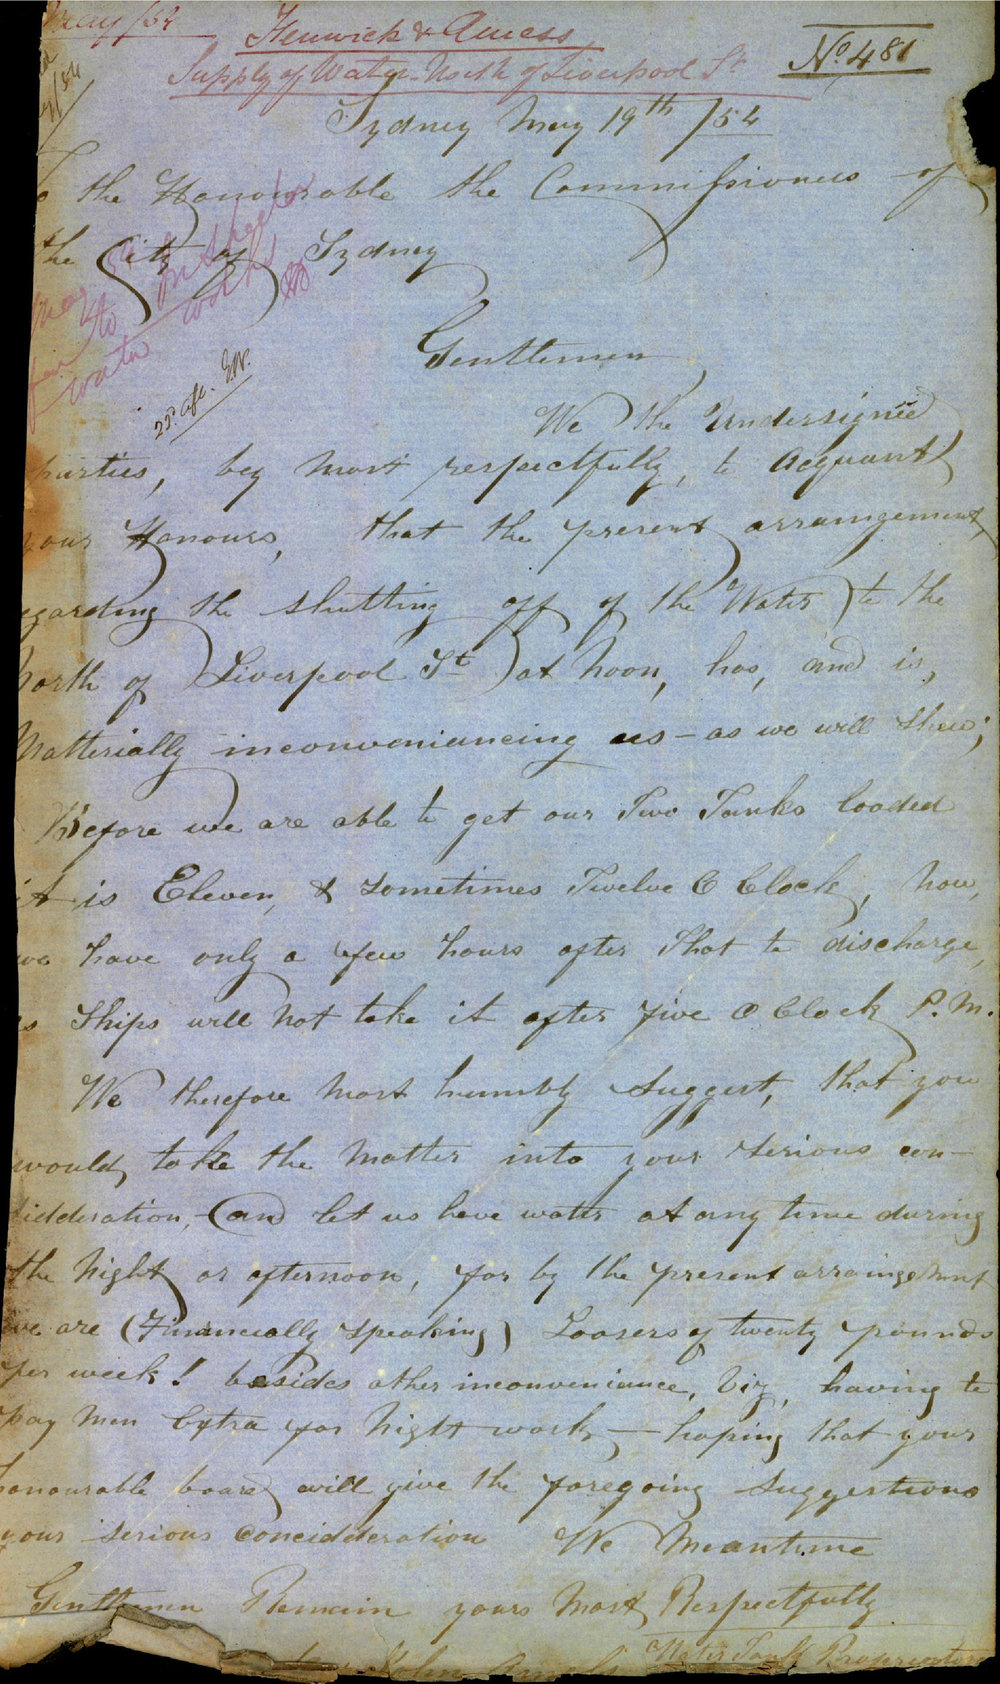 May/54
Fenwick &
Supply of Water North of Liverpool St
No. 481
Sydney May 19th /54
To the Honourable the Commissioners of
the City of Sydney
May
water works
23rd
Gentlemen
We the Undersigned
parties, beg most respectfully, to Acquant
your Honours, that the present arraingement
egarding the shutting off of the Water to the
North of Liverpool St at Noon, has, and is,
Matterially inconveniancing us – as we will Shew;
Before we are able to get our Two Tanks loaded
it is Eleven, & sometimes Twelve O Clock, now,
we have only a few hours after that to discharge,
as Ships will not take it after five O Clock P.M.
We therefore Most humbly Suggest, that you
would, take the Matter into your Serious con-
sidderation, (and let us have water at any time during
the Night or afternoon, for by the present arraingement
we are (Financially Speaking) Loosers of twenty pounds
per week! besides other inconveniance, Viz, having to
pay Men Extra for Night work, – hoping that your
honourable board will give the foregoing Suggestions
your Serious Concidderation We Meantime
Gentlemen Remain yours Most Respectfully
John
Water Tank Proprietors